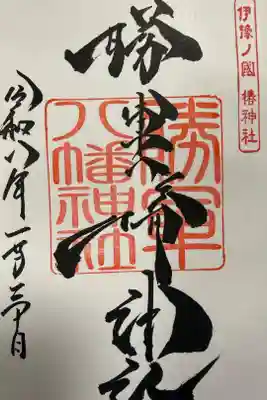 伊豫ノ國 椿神社
勝軍八幡神社
勝軍八幡神社
令和八年一月日